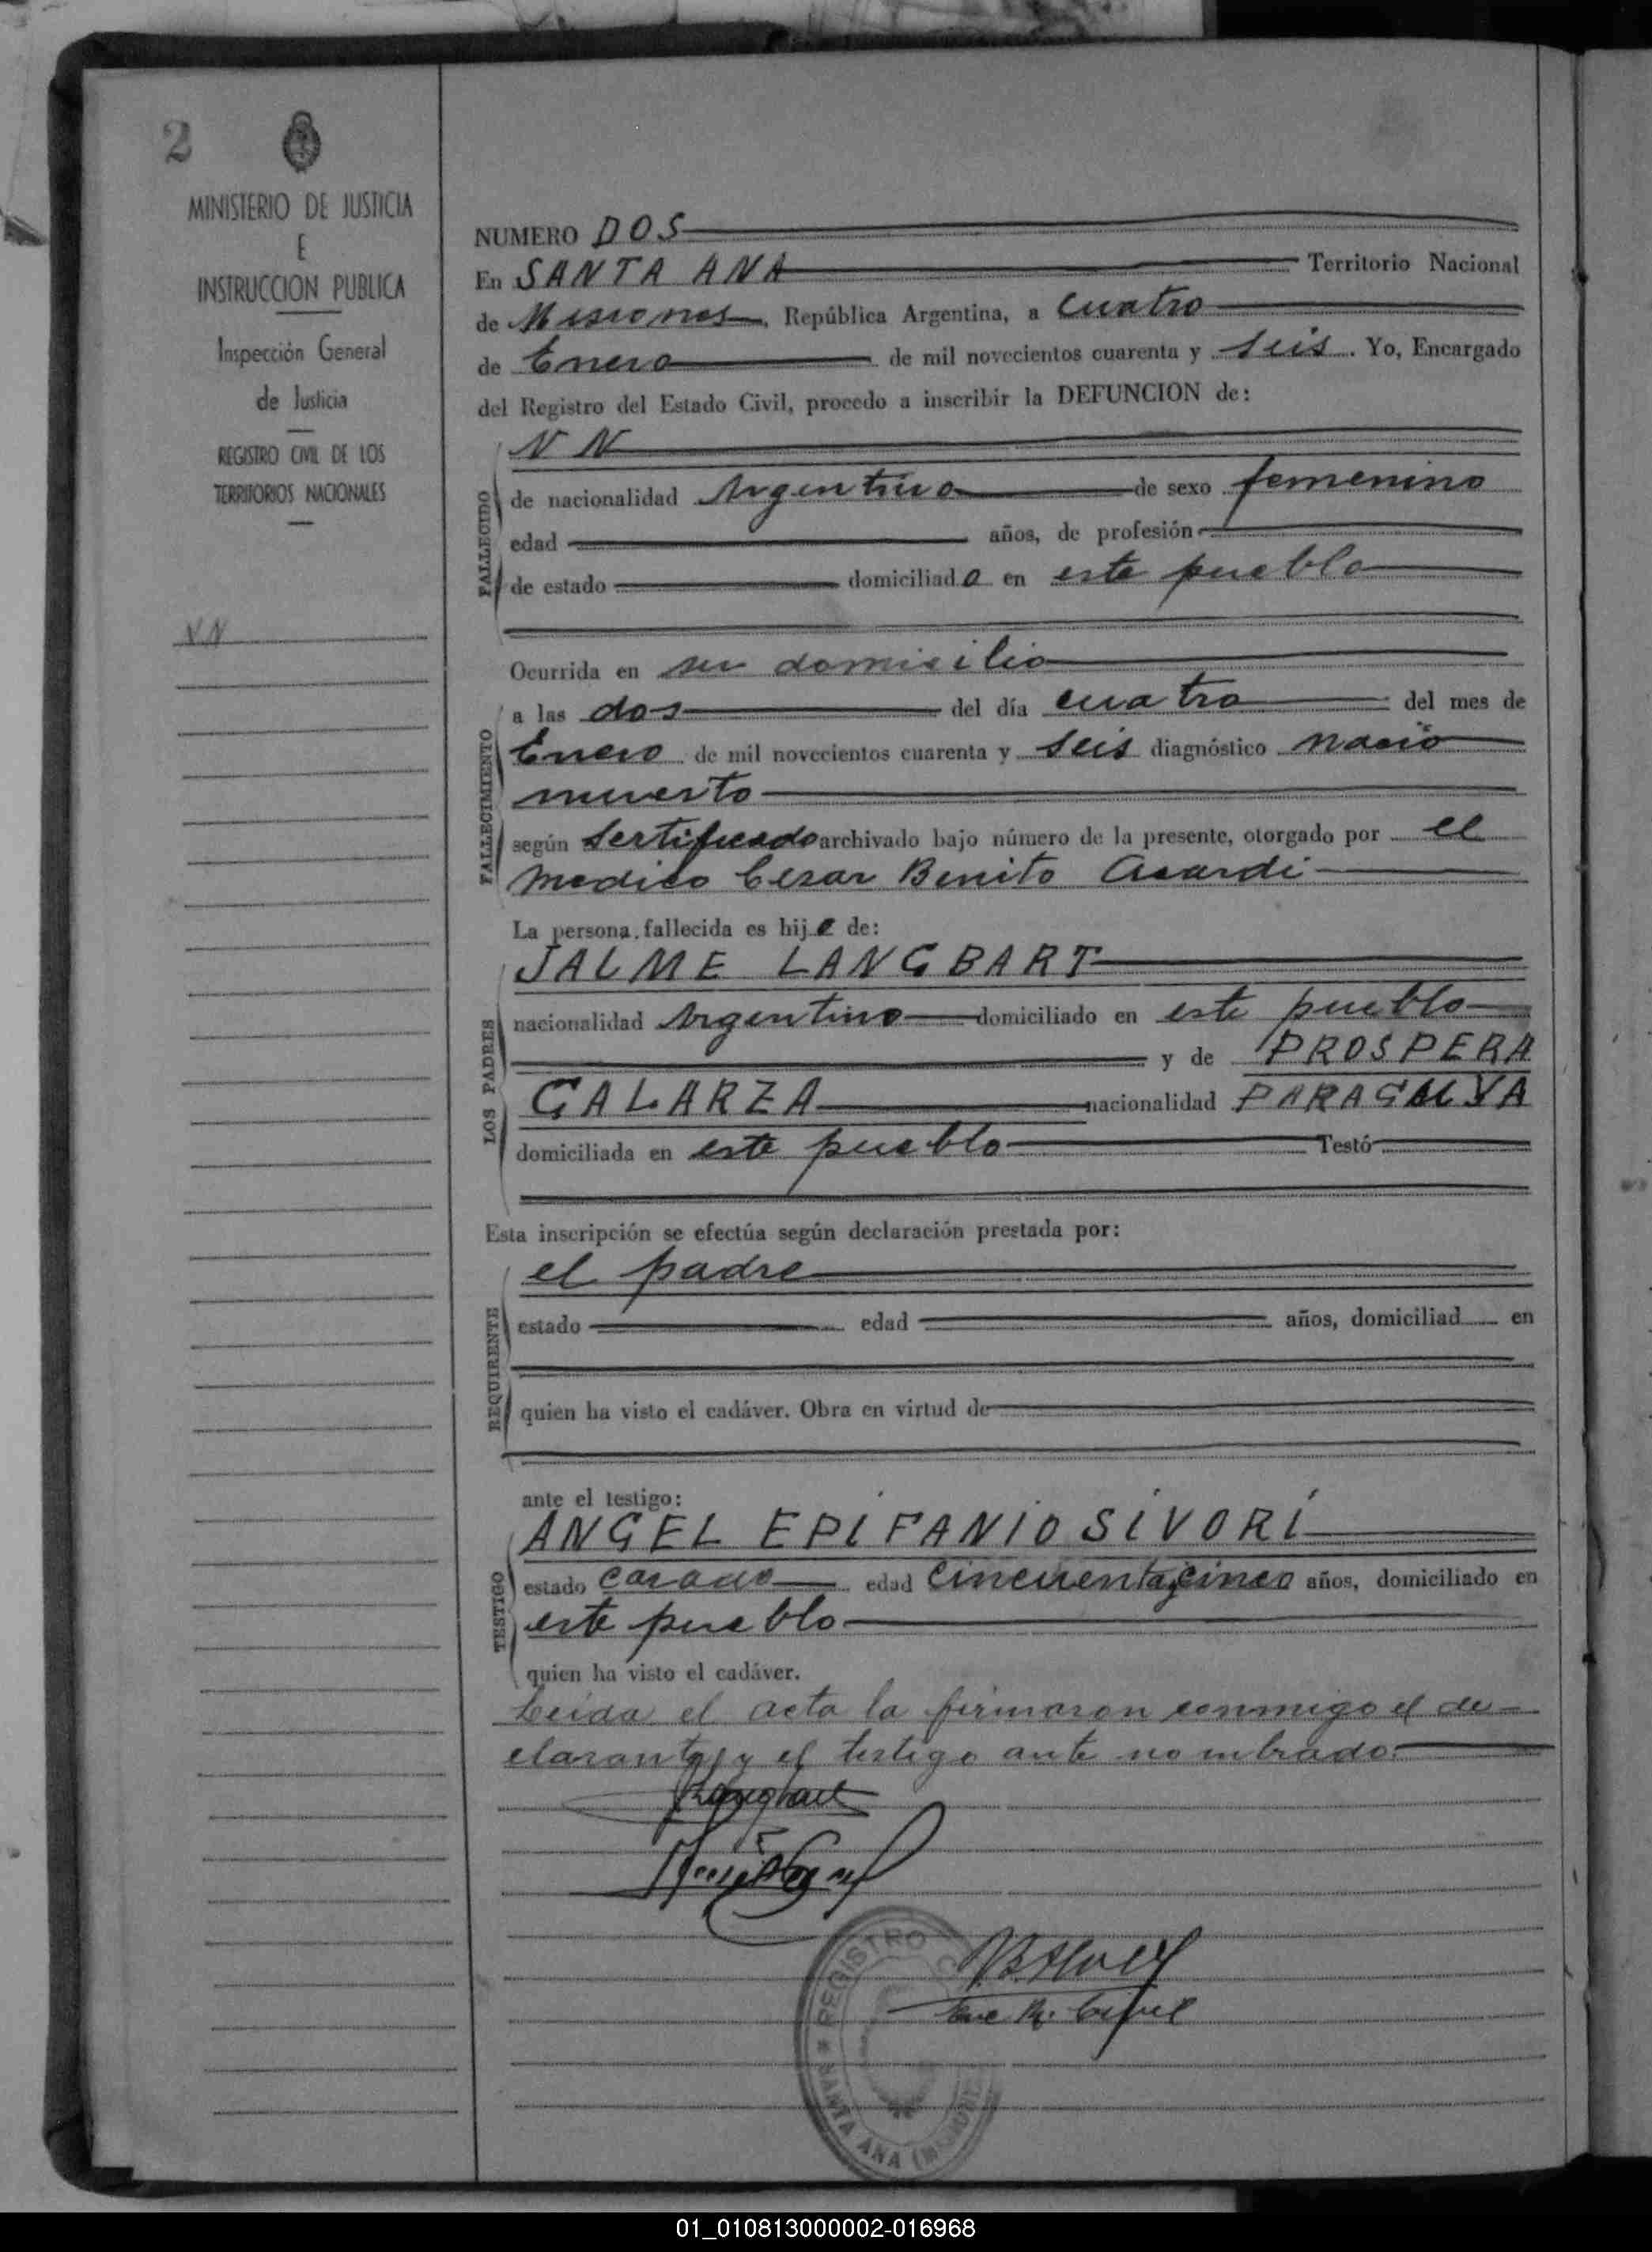 2
MINISTERIO DE JUSTICIA
E
INSTRUCCION PUBLICA
Inspección General
de Justicia
REGISTRO CIVIL DE LOS
TERRITORIOS NACIONALES
N N
NUMERO DOS
En SANTA ANA Territorio Nacional
de Misiones, República Argentina, a cuatro
de Enero de mil novecientos cuarenta y seis. Yo, Encargado
del Registro del Estado Civil, procedo a inscribir la DEFUNCION de:
N N
FALLECIDO
de nacionalidad Argentino de sexo femenino
edad años, de profesión
de estado domiciliado en este pueblo
Ocurrida en su domicilio
FALLECIMIENTO
a las dos del día cuatro del mes de
Enero de mil novecientos cuarenta y seis diagnóstico nacio
muerto
según sertificado archivado bajo número de la presente, otorgado por el
medico Cesar Benito
La persona fallecida es hij de:
LOS PADRES
JAIME LANGBART
nacionalidad Argentino domiciliado en este pueblo
y de PROSPERA
GALARZA nacionalidad PARAGUYA
domiciliada en este pueblo Testó
Esta inscripción se efectúa según declaración prestada por:
REQUIRENTE
el padre
estado edad años, domiciliad en
quien ha visto el cadáver. Obra en virtud de
ante el testigo:
TESTIGO
ANGEL EPIFANIO SIVORI
estado casado edad cincuentaycinco años, domiciliado en
este pueblo
quien ha visto el cadáver.
Leida el acta la firmaron conmigo el de-
clarante y el testigo ante nombrado.
REGISTRO
SANTA ANA
01_010813000002-016968